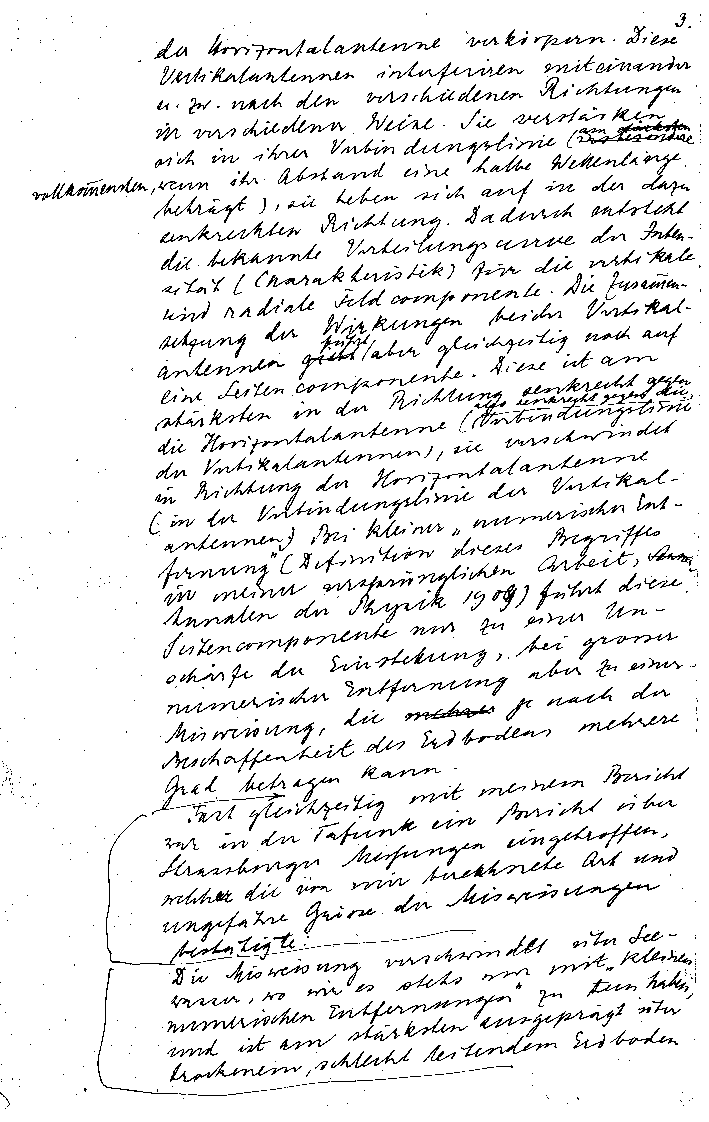 3.
der Horizontalantenne verkörpern. Diese
Vertikalantennen interferiren miteinander
u. zw. nach den verschiedenen Richtungen
in verschiedener Weise. Sie verstärken
sich in ihrer Verbindungslinie (am stärksten insbesondere
vollkommensten, wenn ihr Abstand eine halbe Wellenlänge
beträgt), sie heben sich auf in der dazu
senkrechten Richtung. Dadurch entsteht
die bekannte Verteilungscurve der Inten-
sität (Charakteristik) für die vertikale
und radiale Feldcomponente. Die Zusammen-
setzung der Wirkungen beider Vertikal-
antennen giebt führt aber gleichzeitig noch auf
eine Seitencomponente. Diese ist am
stärksten in der Richtung senkrecht gegen
die Horizontalantenne (also senkrecht gegen die Verbindungslinie
der Vertikalantennen), sie verschwindet
in Richtung der Horizontalantenne
(in der Verbindungslinie der Vertikal-
antennen) Bei kleiner „numerischer Ent-
fernung" (Definition dieses Begriffes
in meiner ursprünglichen Arbeit,
Annalen der Physik 1909) führt diese
Seitencomponente nur zu einer Un-
schärfe der Einstellung, bei grosser
numerischer Entfernung aber zu einer
Misweisung, die mehrer je nach der
Beschaffenheit des Erdbodens mehrere
Grad betragen kann.
Fast gleichzeitig mit meinem Bericht
war in der Tafunk ein Bericht über
Strassburger Messungen eingetroffen,
welcher die von mir berechnete Art und
ungefähre Grösse der Misweisungen
bestätigte.
Die Misweisung verschwindet über See-
wasser, wo wir es stets nur mit „kleinen
numerischen Entfernungen" zu tun haben,
und ist am stärksten ausgeprägt über
trockenem, schlecht leitendem Erdboden